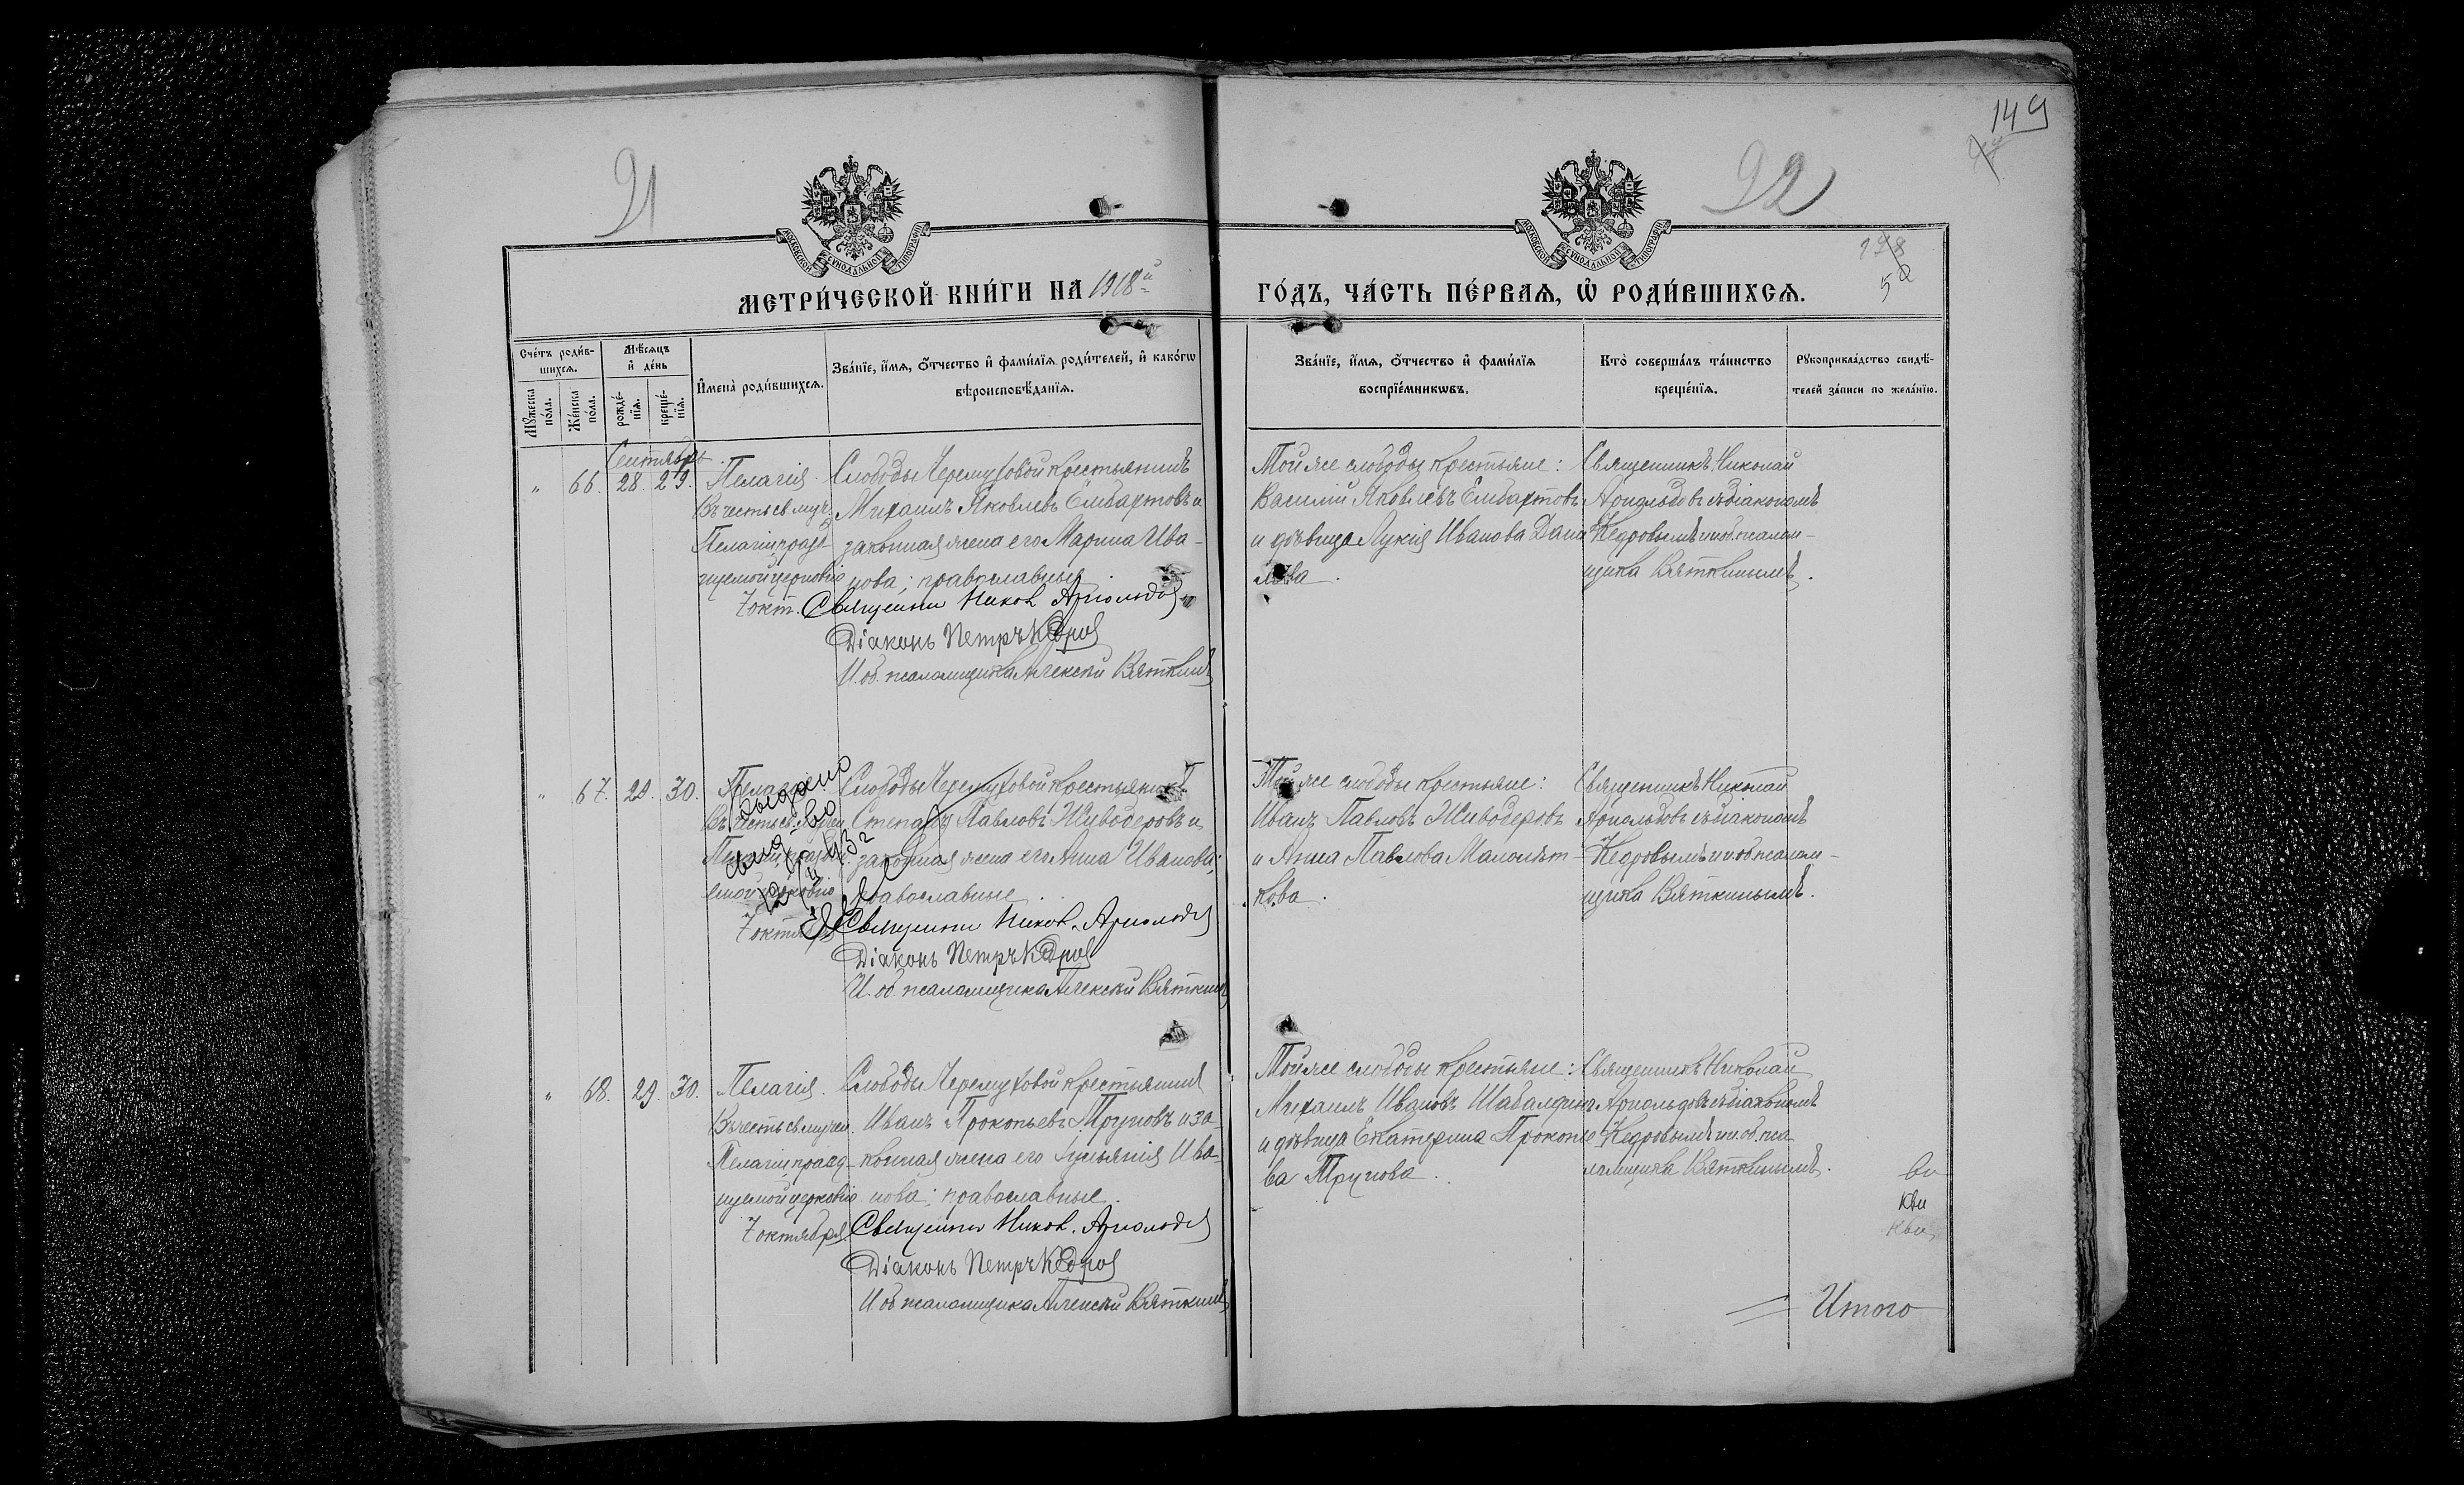 149
91
92
МОСКОВСКОЙ СѴНОДАЛЬНОЙ ТИПОГРАФІИ
МОСКОВСКОЙ СѴНОДАЛЬНОЙ ТИПОГРАФІИ
МЕТРИ́ЧЕСКОЙ КНИ́ГИ НА 1918й
ГО́ДЪ, ЧА́СТЬ ПЕ́РВАѦ, Ѡ҆ РОДИ́ВШИХСѦ.
Сче́тъ роди́в-
шихсѧ.
Мѣ́сѧцъ
и҆ де́нь
Мꙋ́жеска по́ла.
Же́нска по́ла.
рожде́-
нїѧ.
креще́-
нїѧ.
И҆мена̀ роди́вшихсѧ.
Зва́нїе, и҆́мѧ, ѻ҆́тчество и҆ фами́лїѧ роди́телей, и҆ како́гѡ
вѣроисповѣ́данїѧ.
Зва́нїе, и҆́мѧ, ѻ҆́тчество и҆ фами́лїѧ
воспрїе́мникѡвъ.
Кто̀ соверша́лъ та́инство
креще́нїѧ.
Рꙋкоприкла́дство свидѣ́-
телей за́писи по жела́нїю.
Сентябрь.
" 66. 28. 29.
Пелагія.
Въ честь св. муч.
Пелагіи празд-
нуемой церковію
7 окт.
Слободы Черемуховой крестьянинъ
Михаилъ Яковлевъ Ембахтовъ и
законная жена его Марина Ива-
нова; православные.
Священни Никол Арнольдов
Діаконъ Петръ Кедров
И. об. псаломщика Алексѣй Вяткинъ
Той же слободы крестьяне:
Василій Яковлевъ Ембахтовъ
и дѣвица Лукія Иванова Дани
лова.
Священникъ Николай
Арнольдовъ съ діакономъ
Кедровымъ и и. об. псалом-
щика Вяткинымъ.
" 67. 29. 30.
Въ честь св. мучен.
7 октября
выдано
Слободы Черемуховой крестьянинъ
Степанъ Павловъ Живодеровъ и
законная жена его Анна Иванова;
православные.
Священни Никол. Арнольдов
Діаконъ Петръ Кедров
И. об. псаломщика Алексѣй Вяткинъ
Той же слободы крестьяне:
Иванъ Павловъ Живодеровъ
и Анна Павлова Малолѣт-
кова.
Священникъ Николай
Арнольдовъ съ діакономъ
Кедровымъ и и. об. псалом-
щика Вяткинымъ.
" 68. 29. 30.
Пелагія.
Въ честь св. мучен.
Пелагіи празд-
нуемой церковію
7 октября.
Слободы Черемуховой крестьянинъ
Иванъ Прокопьевъ Труновъ и за-
конная жена его Іуліанія Ива-
нова; православные.
Священни Никол. Арнольдов
Діаконъ Петръ Кедров
И. об. псаломщика Алексѣй Вяткинъ
Той же слободы крестьяне:
Михаилъ Ивановъ Шабалдинъ
и дѣвица Екатерина Прокопье
ва Трунова.
Священникъ Николай
Арнольдовъ съ діакономъ
Кедровымъ и и. об. пса
ломщика Вяткинымъ.
Итого